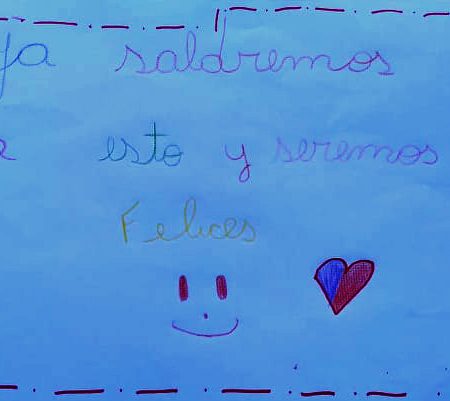 ya saldremos
esto y seremos
Felices